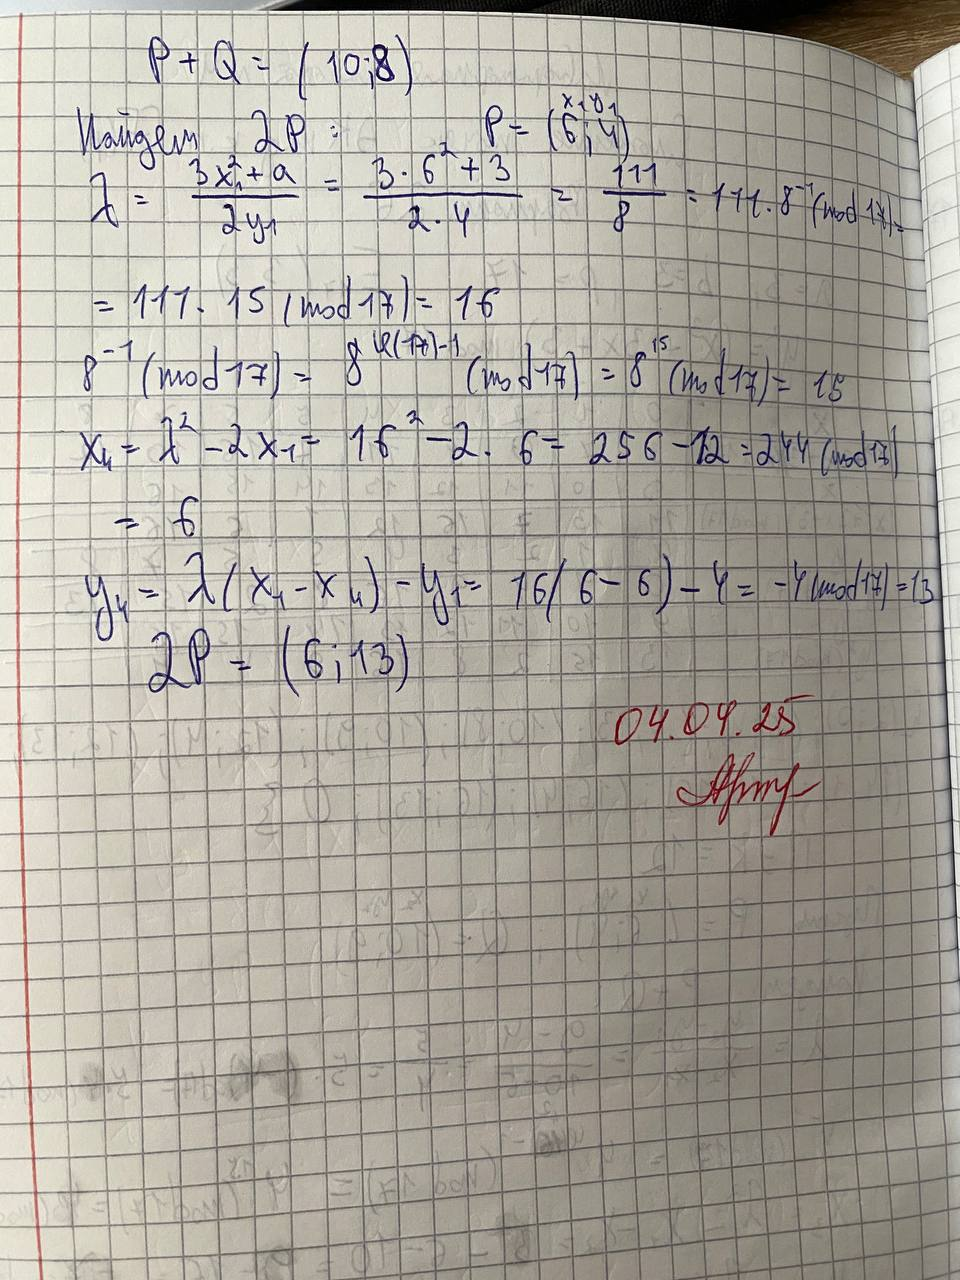 P + Q = (10;8)
Найдем 2P: P = (6;4)
x₁ y₁
λ = (3x₁² + a)/(2y₁) = (3·6² + 3)/(2·4) = 111/8 = 111·8⁻¹(mod 17) =
= 111·15 (mod 17) = 16
8⁻¹ (mod 17) = 8^(φ(17)-1) (mod 17) = 8¹⁵ (mod 17) = 15
x₄ = λ² - 2x₁ = 16² - 2·6 = 256 - 12 = 244 (mod 17)
= 6
y₄ = λ(x₁ - x₄) - y₁ = 16(6 - 6) - 4 = -4 (mod 17) = 13
2P = (6;13)
04.04.25